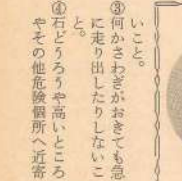 いこと。
③何かさわぎがおきても急
に走り出したりしないこ
と。
④石どうろうや高いところ
やその他危険個所へ近寄